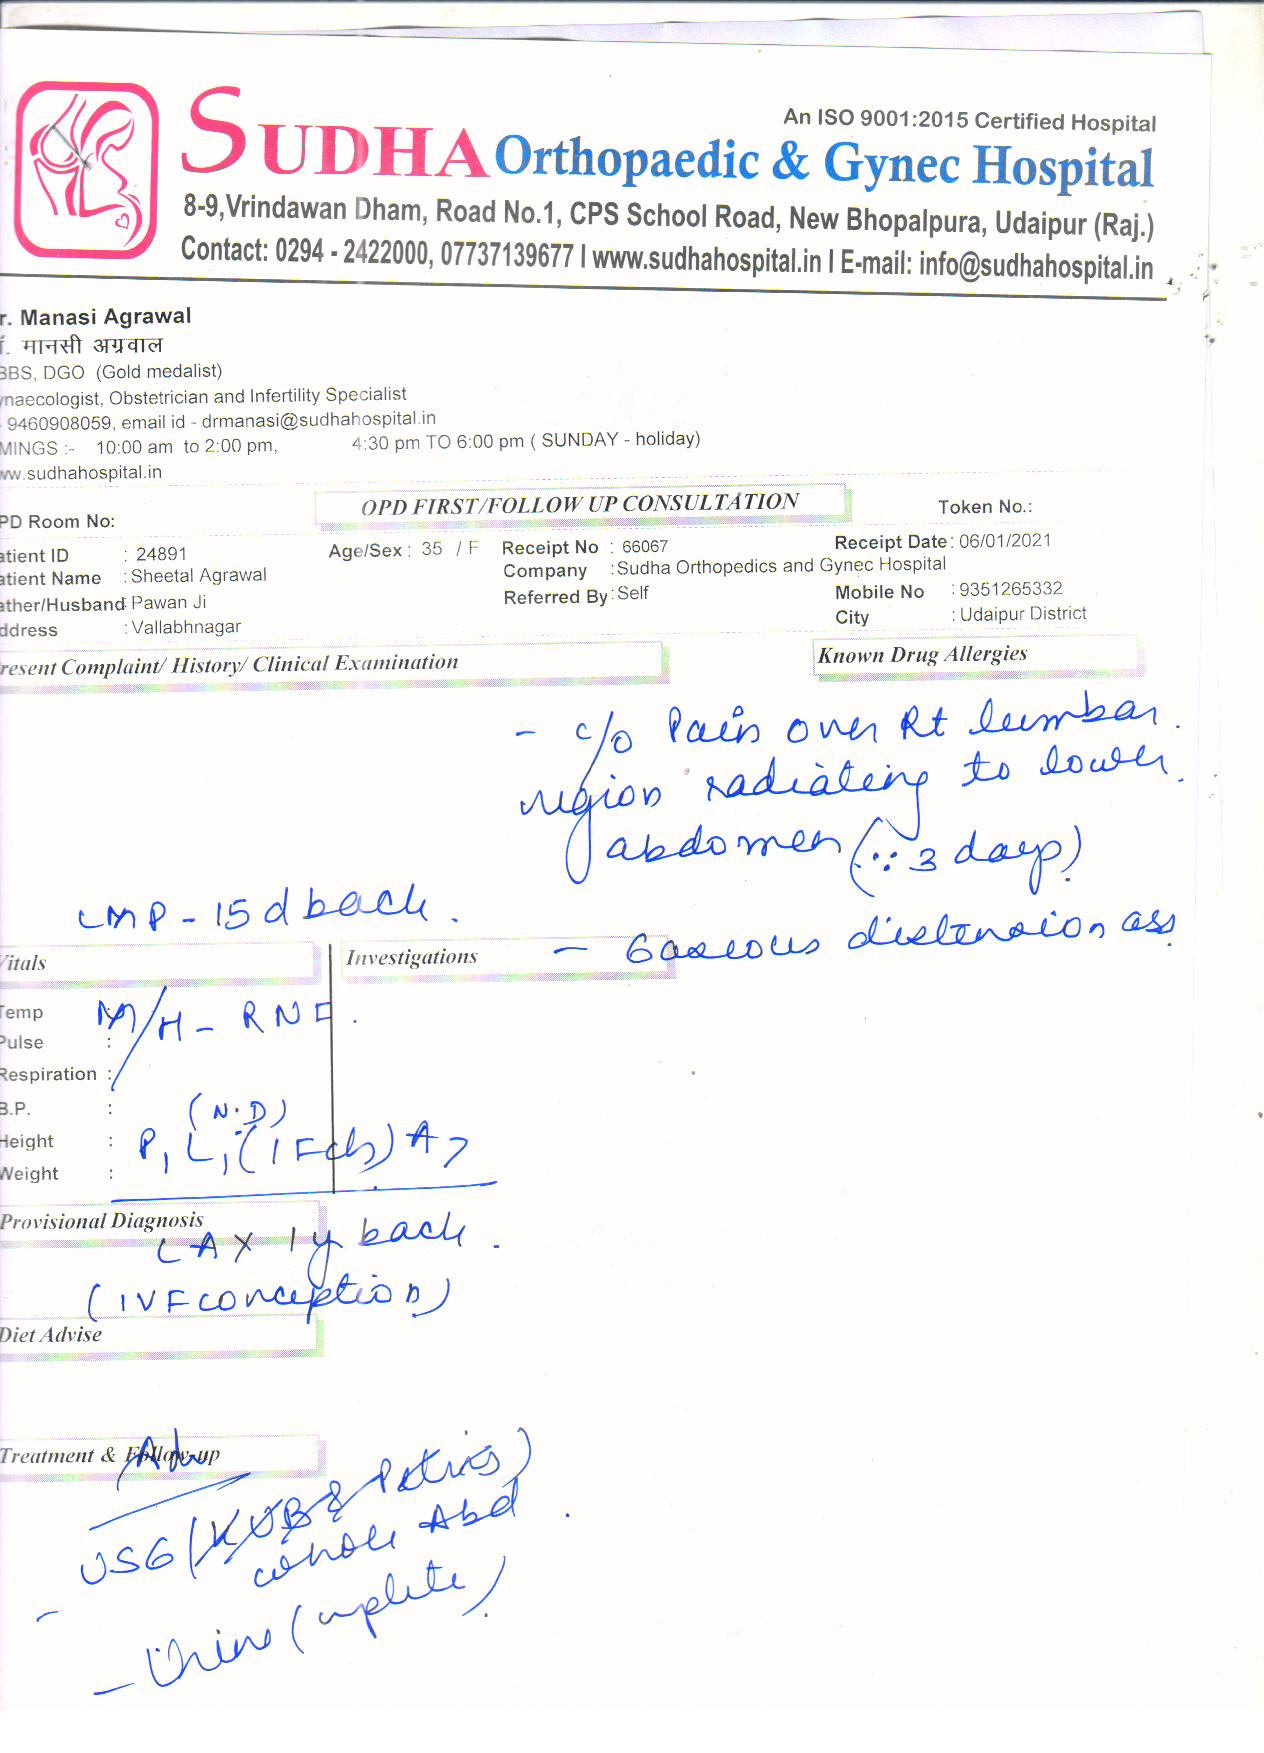 An ISO 9001:2015 Certified Hospital
SUDHA Orthopaedic & Gynec Hospital
8-9,Vrindawan Dham, Road No.1, CPS School Road, New Bhopalpura, Udaipur (Raj.)
Contact: 0294 - 2422000, 07737139677 I www.sudhahospital.in I E-mail: info@sudhahospital.in
r. Manasi Agrawal
ॉ. मानसी अग्रवाल
BBS, DGO (Gold medalist)
ynaecologist, Obstetrician and Infertility Specialist
9460908059, email id - drmanasi@sudhahospital.in
MINGS :- 10:00 am to 2:00 pm, 4:30 pm TO 6:00 pm ( SUNDAY - holiday)
ww.sudhahospital.in
OPD FIRST/FOLLOW UP CONSULTATION
PD Room No: Token No.:
atient ID : 24891 Age/Sex : 35 / F Receipt No : 66067 Receipt Date : 06/01/2021
atient Name : Sheetal Agrawal Company : Sudha Orthopedics and Gynec Hospital
ather/Husband : Pawan Ji Referred By : Self Mobile No : 9351265332
ddress : Vallabhnagar City : Udaipur District
resent Complaint/ History/ Clinical Examination Known Drug Allergies
- c/o Pain over Rt lumbar
region radiating to lower
abdomen (∵ 3 days)
LMP - 15 d back.
- Gaseous distension
Vitals Investigations
M/H - RNF.
Temp
Pulse :
Respiration :
B.P. :
(N.D)
Height :
P1 L1 (1 Fch) A7
Weight :
Provisional Diagnosis
LAX 1y back.
(IVF conception)
Diet Advise
Treatment & Follow-up
Adv
- USG (KUB & Pelvis)
whole Abd
- Urine (complete)